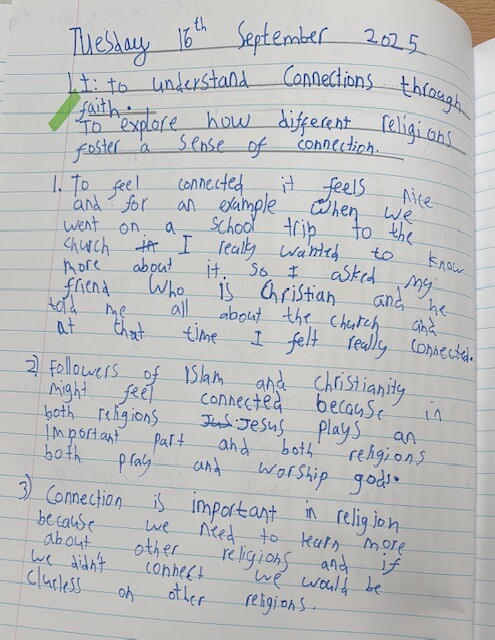 Tuesday 16th September 2025
L.I: to understand Connections through
faith.
To explore how different religions
foster a sense of connection.
1. To feel connected it feels nice
and for an example when we
went on a school trip to the
church in I really wanted to know
more about it. so I asked my
friend who is Christian and he
told me all about the church and
at that time I felt really connected.
2) Followers of Islam and Christianity
might feel connected because in
both religions Jus Jesus plays an
important part and both religions
both pray and worship gods.
3) Connection is important in religion
because we need to learn more
about other religions and if
we didn't connect we would be
clueless on other religions.